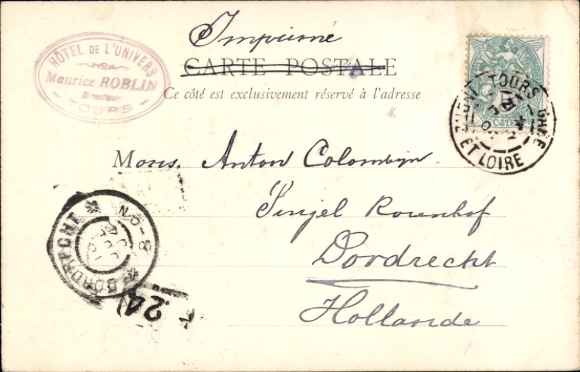 HÔTEL DE L'UNIVERS
Maurice ROBLIN
Directeur
TOURS
Imprimé
CARTE POSTALE
Ce côté est exclusivement réservé à l'adresse
TOURS GARE
ET LOIRE
Mons. Anton Colombijn
Singel Rozenhof
Dordrecht
Hollande
DORDRECHT
8-9N
24